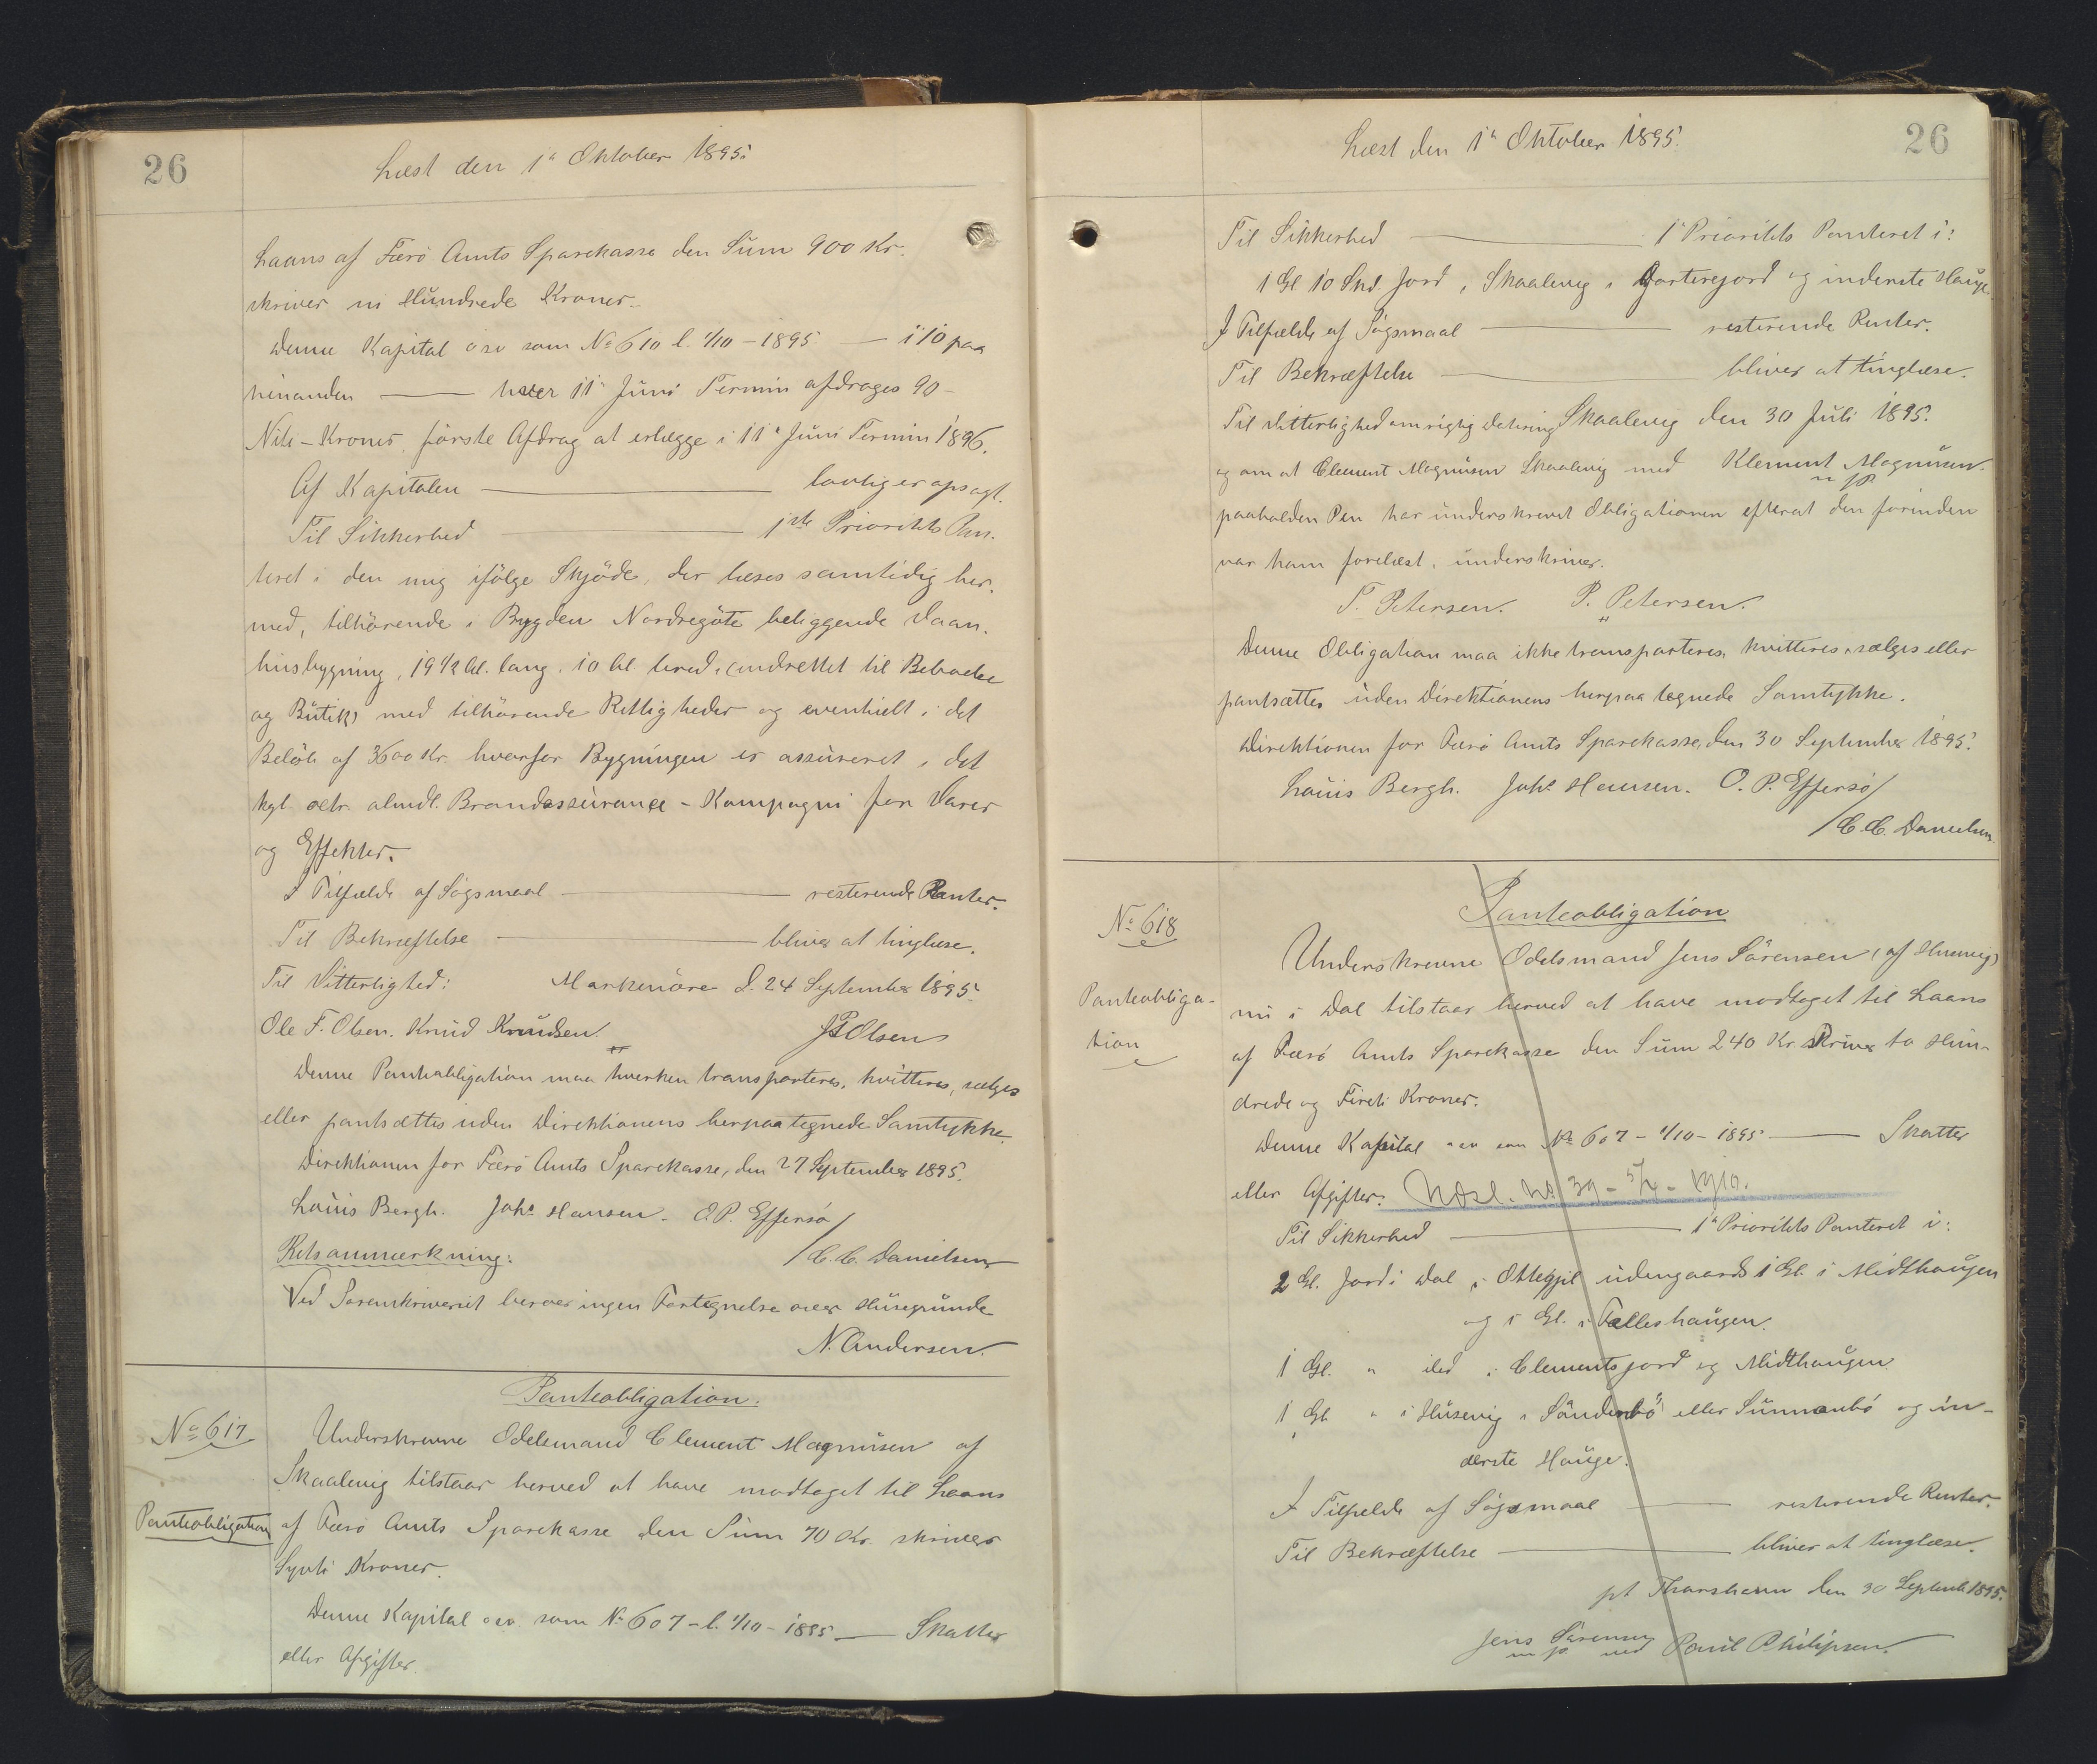 26
Læst den 1ª Oktober 1895.
Laans af Færö Amts Sparekasse den Sum 900 Kr.
skriver ni Hundrede Kroner.
Denne Kapital osv som Nº 610 l. 1/10 - 1895 — i 10 paa
hinanden — hver 11' Juni Termin afdrages 90 -
Niti - Kroner, første Afdrag at erlægge i 11ª Juni Termin 1896.
Af Kapitalen — lovlig er opsagt.
Til Sikkerhed — 1ste Prioritets Pan-
teret i den mig ifølge Skjöde, der læses samtidig her-
med, tilhörende i Bygden Nordregöte beliggende Vaan-
husbygning, 19 1/2 Al. lang, 10 Al. bred, (indrettet til Beboelse
og Butik) med tilhörende Rettigheder og eventuelt i det
Belöb af 3600 Kr. hvorfor Bygningen er assureret i det
kgl. octr. almdl. Brandassurance - Kompagni for Varer
og Effekter.
I Tilfælde af Sögsmaal — resterende Renter.
Til Bekræftelse — bliver at tinglæse.
Til Vitterlighed: Markenöre d. 24 September 1895.
Ole F. Olsen. Knud Knudsen. JPOlsen
Denne Panteobligation maa hverken transporteres, kvitteres, sælges
eller pantsættes uden Direktionens herpaa tegnede Samtykke.
Direktionen for Færö Amts Sparekasse, den 27 September 1895.
Louis Bergh. Johs Hansen. O. P. Effersö/
Retsanmærkning: /C. C. Danielsen
Ved Sorenskriveriet beroer ingen Fortegnelse over Husegrunde
N. Andersen.
Panteobligation.
Nº 617
Underskrevne Odelsmand Clement Magnusen af
Skaalevig tilstaar herved at have modtaget til Laans
Panteobligation
af Færö Amts Sparekasse den Sum 70 Kr. skriver
Syvti Kroner.
Denne Kapital osv. som Nº 607 - l. 1/10 - 1895 — Skatter
eller Afgifter.
26
Læst den 1ª Oktober 1895.
Til Sikkerhed — 1' Prioritets Panteret i:
1 Gl 10 Skd. Jord i Skaalevig i Gorterejord og inderste Hauge.
I Tilfælde af Sögsmaal — resterende Renter.
Til Bekræftelse — bliver at tinglæse.
Til Vitterlighed om rigtig Datering Skaalevig den 30 Juli 1895.
og om at Clement Magnusen Skaalevig med Klement Magnusen.
m p
paaholden Pen har underskrevet Obligationen efterat den forinden
var ham forelæst, underskriver.
T. Petersen. P. Petersen.
Denne Obligation maa ikke transporteres, kvitteres, sælges eller
pantsættes uden Direktionens herpaa tegnede Samtykke.
Direktionen for Færö Amts Sparekasse, den 30 September 1895.
Louis Bergh. Johs Hansen. O. P. Effersö/
/C. C. Danielsen.
Panteobligation
Nº 618
Underskrevne Odelsmand Jens Sörensen (af Husevig)
Panteobliga-
tion
nu i Dal tilstaar herved at have modtaget til Laans
af Færö Amts Sparekasse den Sum 240 Kr. skriver to Hun-
drede og Fireti Kroner.
Denne Kapital osv som Nº 607 - 1/10 - 1895 — Skatter
eller Afgifter. Udsl. No 39 - 5/4 - 1910.
Til Sikkerhed — 1ª Prioritets Panteret i:
2 Gl. Jord i Dal i udengaards 1 Gl. i Midthaugen
og 1 Gl. i Fælleshaugen.
1 Gl. " ibd i Clementsjord og Midthaugen
1 Gl. " i Husevig i Sönderbö eller Sunnanbö og in-
derste Hauge.
I Tilfælde af Sögsmaal — resterende Renter.
Til Bekræftelse — bliver at tinglæse.
pt Thorshavn den 30 Septemb 1895.
Jens Sörensen
m p ved Poul Philipsen.